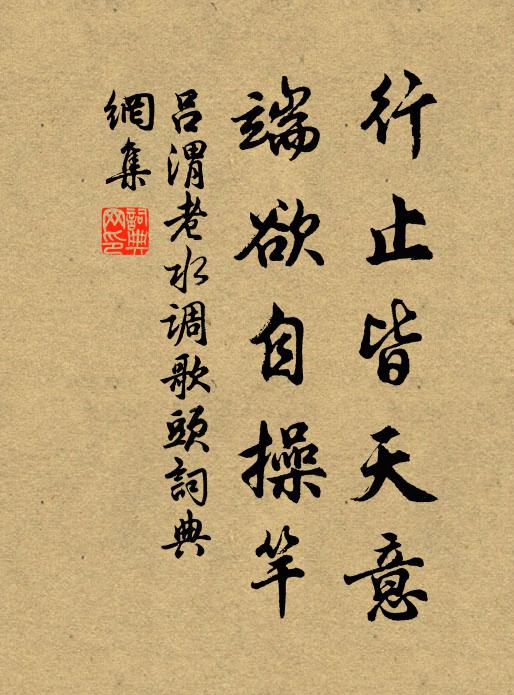 行止皆天意
端欲自操竿
吕渭老水调歌頭詞典
網集
詞典
网印